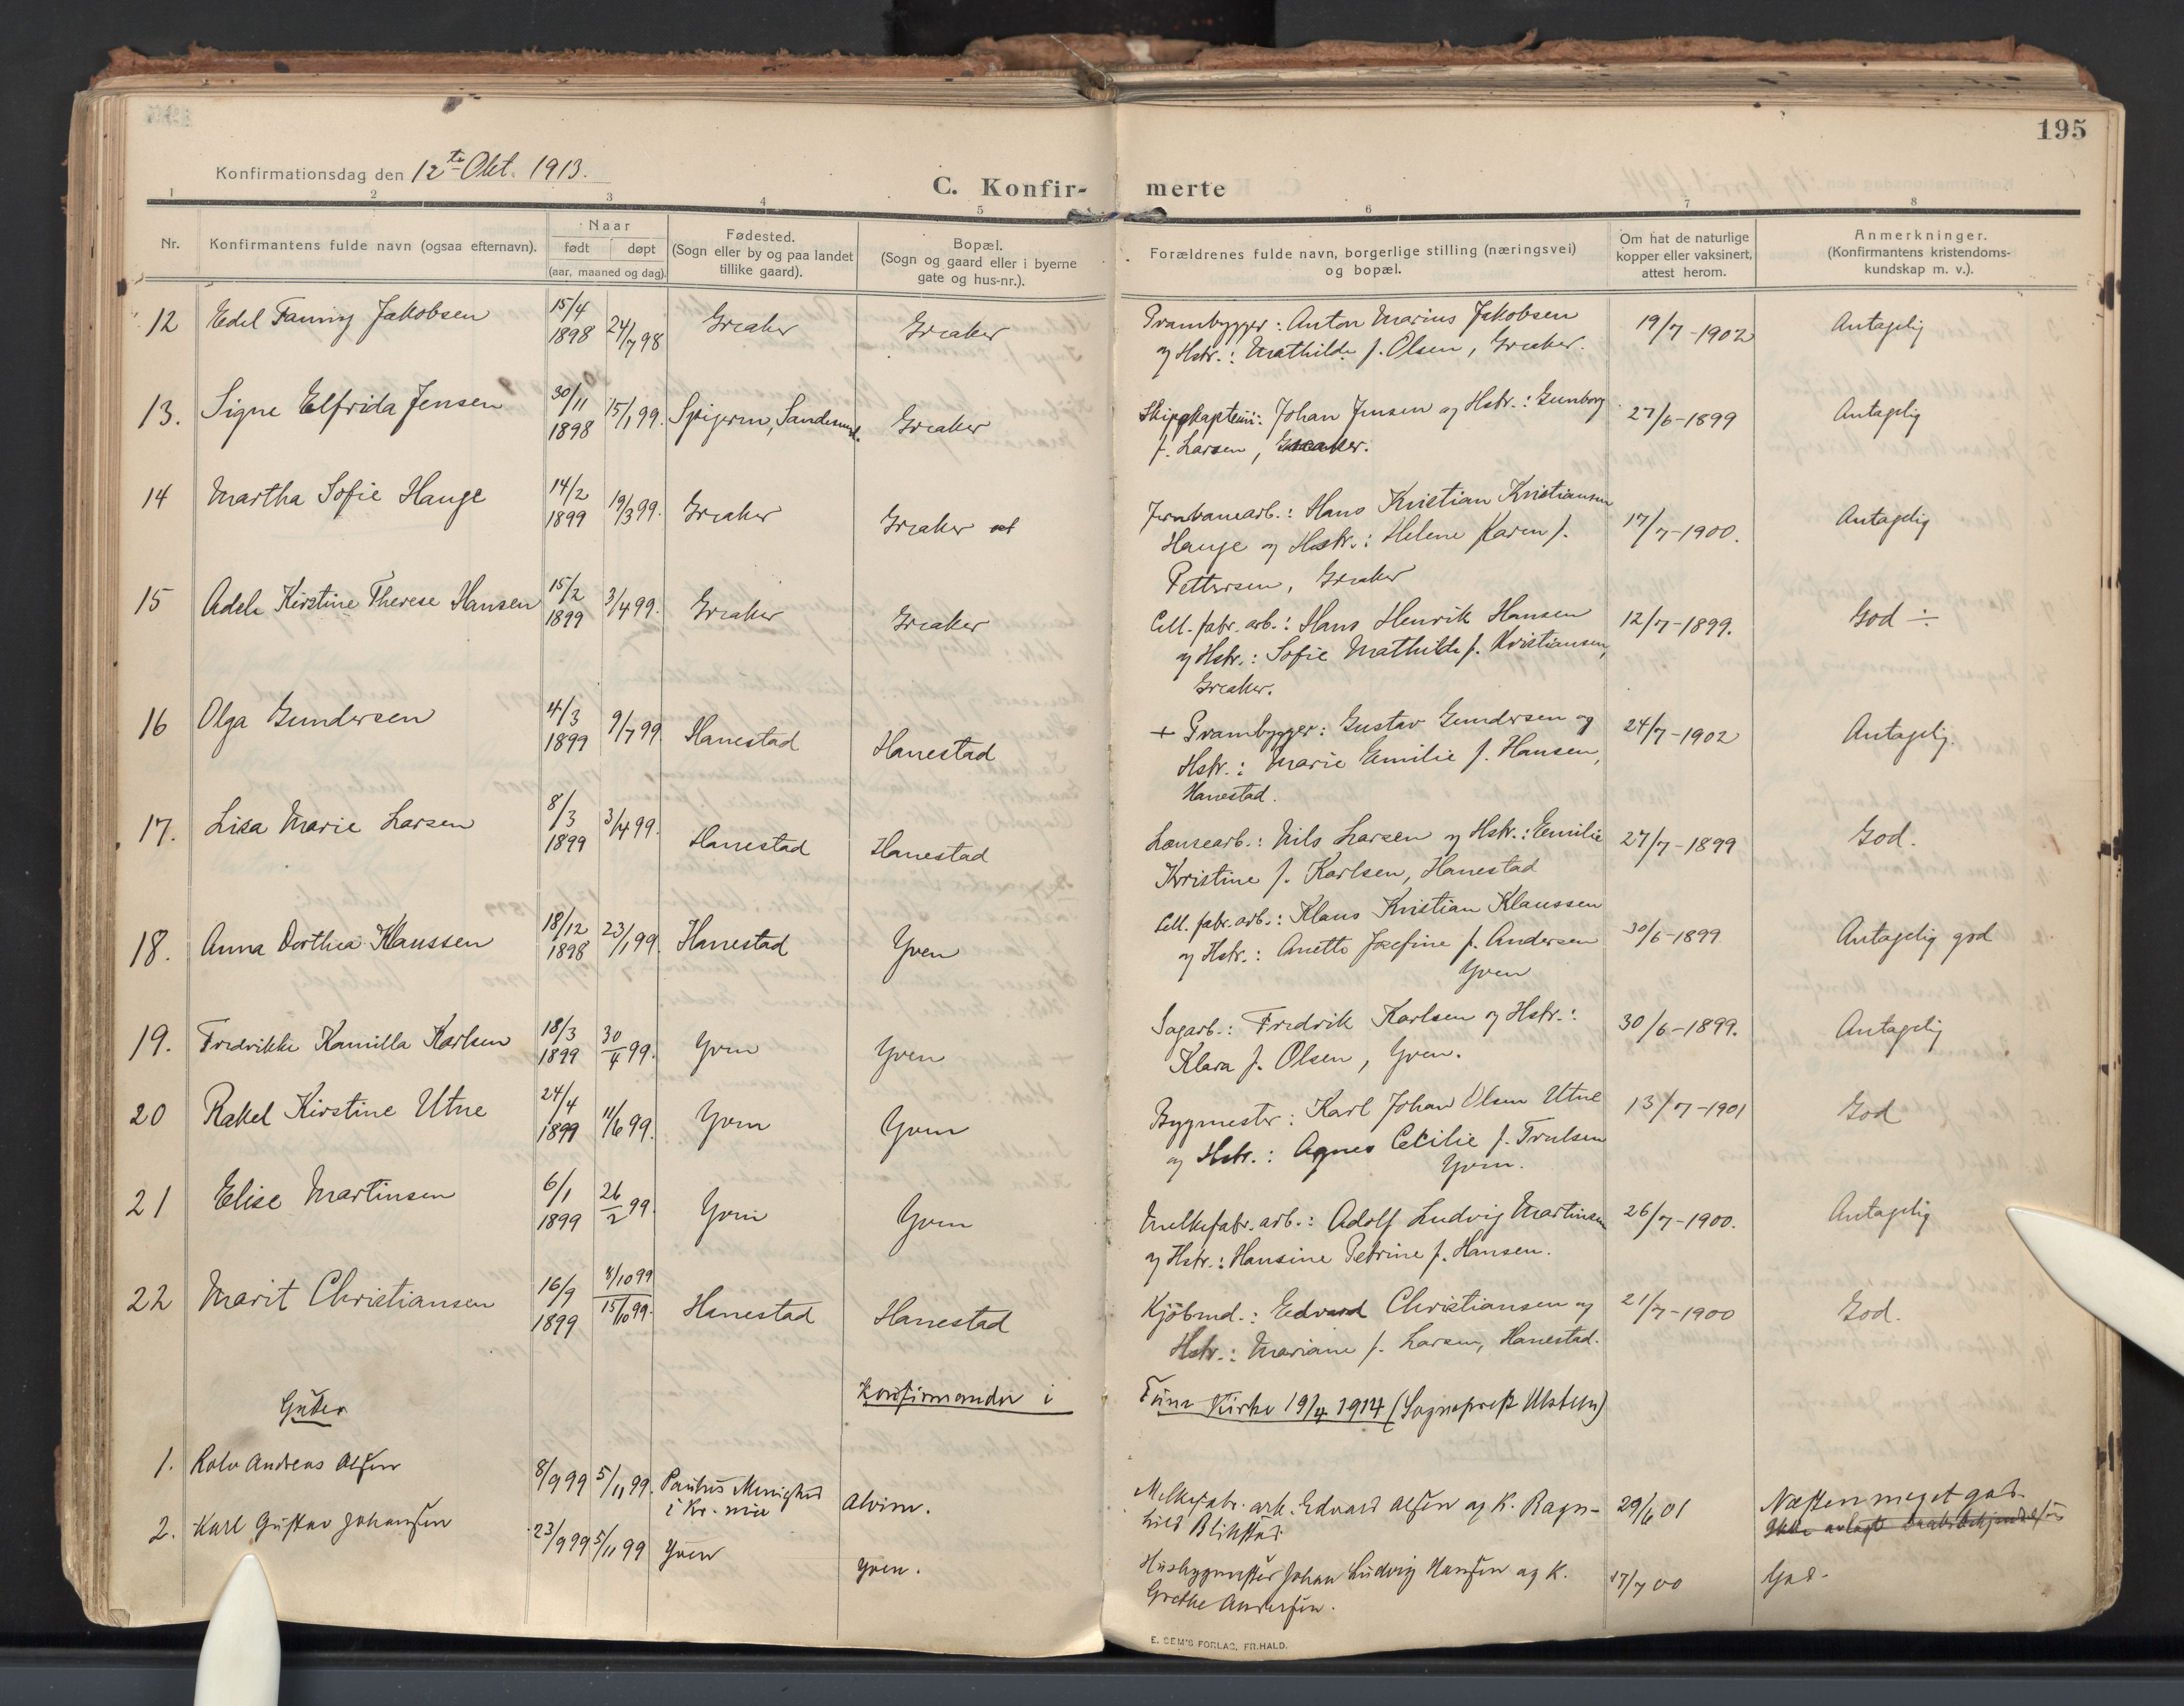 195
Konfirmationsdag den 12te Okt. 1913.
C. Konfir- merte
1 2 3 4 5 6 7 8
Nr.
Konfirmantens fulde navn (ogsaa efternavn).
Naar
født døpt
(aar, maaned og dag).
Fødested.
(Sogn eller by og paa landet
tillike gaard).
Bopæl.
(Sogn og gaard eller i byerne
gate og hus-nr.).
Forældrenes fulde navn, borgerlige stilling (næringsvei)
og bopæl.
Om hat de naturlige
kopper eller vaksinert,
attest herom.
Anmerkninger.
(Konfirmantens kristendoms-
kundskap m. v.).
12 Edel Fanny Jakobsen 15/4 1898 24/7 98 Greaker Greaker
Prambygger: Anton Marius Jakobsen
og Hstr.: Mathilde f. Olsen, Greaker.
19/7-1902 Antagelig
13. Signe Elfrida Jensen 30/11 1898 15/1 99. Spjæren, Sandesund. Greaker
Skipskaptein: Johan Jensen og Hstr.: Gunborg
f. Larsen, Greaker.
27/6-1899 Antagelig
14 Martha Sofie Hauge 14/2 1899 19/3 99. Greaker Greaker
Jernbanearb.: Hans Kristian Kristiansen
Hauge og Hstr.: Helene Karen f.
Pettersen, Greaker
17/7-1900. Antagelig
15 Adele Kirstine Therese Hansen 15/2 1899 3/4 99. Greaker Greaker
Cell. fabr. arb.: Hans Henrik Hansen
og Hstr.: Sofie Mathilde f. Kristiansen,
Greaker.
12/7-1899. God ÷
16 Olga Gundersen 4/3 1899 9/7 99 Hanestad Hanestad
+ Prambygger: Gustav Gundersen og
Hstr.: Marie Emilie f. Hansen,
Hanestad.
24/7-1902 Antagelig.
17. Lisa Marie Larsen 8/3 1899 3/4 99. Hanestad Hanestad
Lænsearb.: Nils Larsen og Hstr.: Emilie
Kristine f. Karlsen, Hanestad
27/7-1899 God.
18. Anna Dorthea Klaussen 18/12 1898 23/1 99. Hanestad Yven
Cell. fabr. arb.: Klaus Kristian Klaussen
og Hstr.: Anette Josefine f. Andersen
Yven
30/6-1899 Antagelig god
19. Fredrikke Kamilla Karlsen 18/3 1899 30/4 99. Yven Yven
Sagarb.: Fredrik Karlsen og Hstr.:
Klara f. Olsen, Yven.
30/6-1899. Antagelig
20 Rakel Kirstine Utne 24/4 1899 11/6 99. Yven Yven
Bygmester: Karl Johan Olsen Utne
og Hstr.: Agnes Cecilie f. Trulsen
Yven.
13/7-1901 God
21 Elise Martinsen 6/1 1899 26/2 99. Yven Yven
Melkefabr. arb.: Adolf Ludvig Martinsen
og Hstr.: Hansine Petrine f. Hansen.
26/7-1900. Antagelig
22 Marit Christiansen 16/9 1899 8/10 99 15/10 99. Hanestad Hanestad
Kjöbmd.: Edvard Christiansen og
Hstr.: Mariane f. Larsen, Hanestad.
21/7-1900 God.
Gutter
Konfirmander i Tune Kirke 19/4 1914 (Sogneprest Ulstein)
1. Rolv Andreas Olsen 8/9 99 5/11 99. Paulus Menighed
i Kr.-nia Alvim.
Melkefabr. arb. Edvard Olsen og K. Ragn-
hild Blikstad
29/6 01 Næsten meget god.
2. Karl Gustav Johansen 23/9 99 5/11 99 Yven Yven.
Husbygmester Johan Ludvig Hansen og K.
Grethe Andersen.
17/7 00 God.
E. SEM'S FORLAG, FR.HALD.